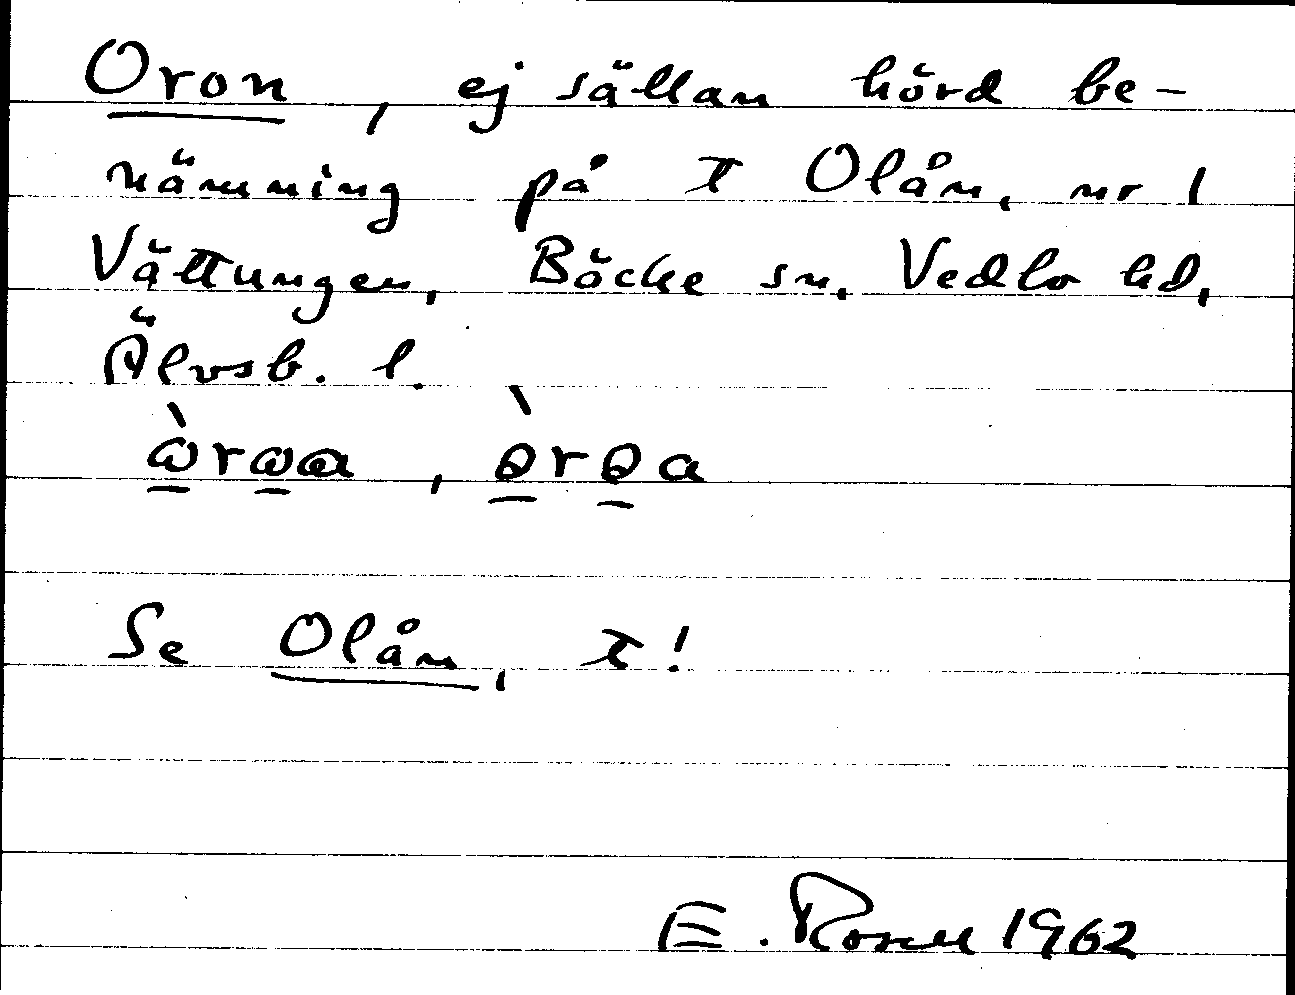 Oron, ej sällan hörd be-
nämning på t Olån, nr 1
Vättungen, Böcke sn. Vedbo hd,
Älvsb. l.
Se Olån, t!
E. Rosell 1962